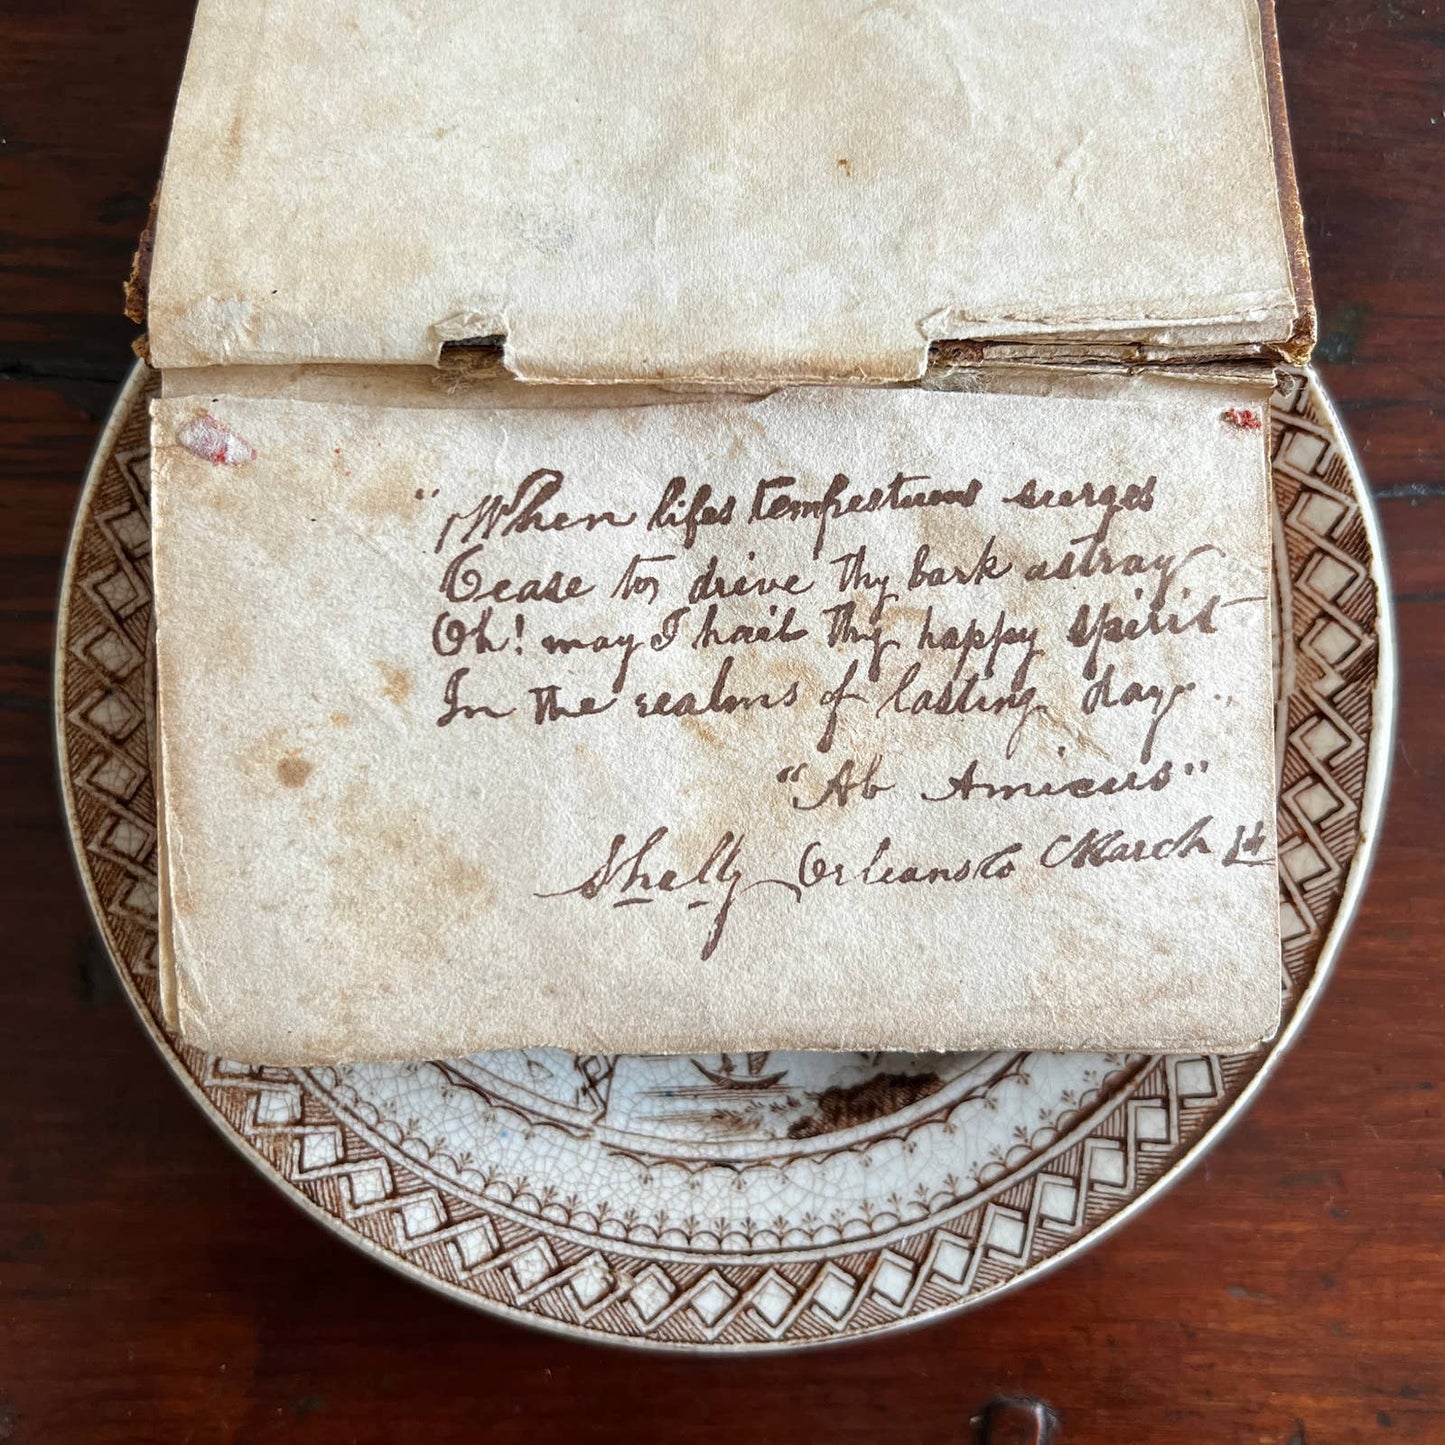 "When lifes tempestuous surges
Cease to drive thy bark astray
Oh! may I hail thy happy spirit
In the realms of lasting day..
"Ab Amicus"
Shelly Orleans Co March 14